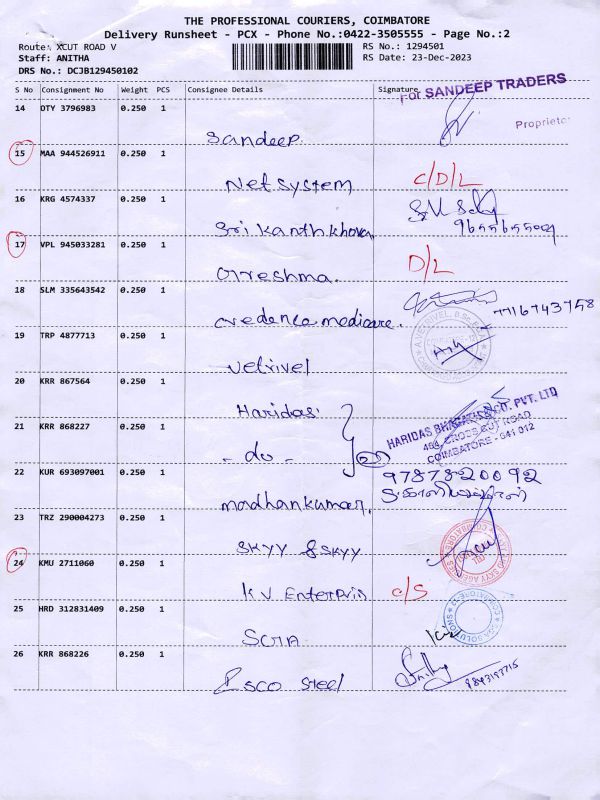 THE PROFESSIONAL COURIERS, COIMBATORE
Delivery Runsheet - PCX - Phone No.:0422-3505555 - Page No.:2
Route: XCUT ROAD V
RS No.: 1294501
Staff: ANITHA
RS Date: 23-Dec-2023
DRS No.: DCJB129450102
S No Consignment No Weight PCS Consignee Details Signature
For SANDEEP TRADERS
14 DTY 3796983 0.250 1
Proprietor
Sandeep.
15 MAA 944526911 0.250 1
Net System C/D/L
16 KRG 4574337 0.250 1
9655655009
Sri Kanth khova
17 VPL 945033281 0.250 1
D/L
18 SLM 335643542 0.250 1
7716743758
credence medicare.
19 TRP 4877713 0.250 1
Vetrivel
20 KRR 867564 0.250 1
Haridas.
HARIDAS BHAGATH & CO. PVT. LTD
21 KRR 868227 0.250 1
468, CROSS CUT ROAD
COIMBATORE - 641 012
- do -
22 KUR 693097001 0.250 1
9787820092
madhankumar.
23 TRZ 290004273 0.250 1
Skyy & Skyy
24 KMU 2711060 0.250 1
K V Enterpris C/S
25 HRD 312831409 0.250 1
26 KRR 868226 0.250 1
Esco Steel